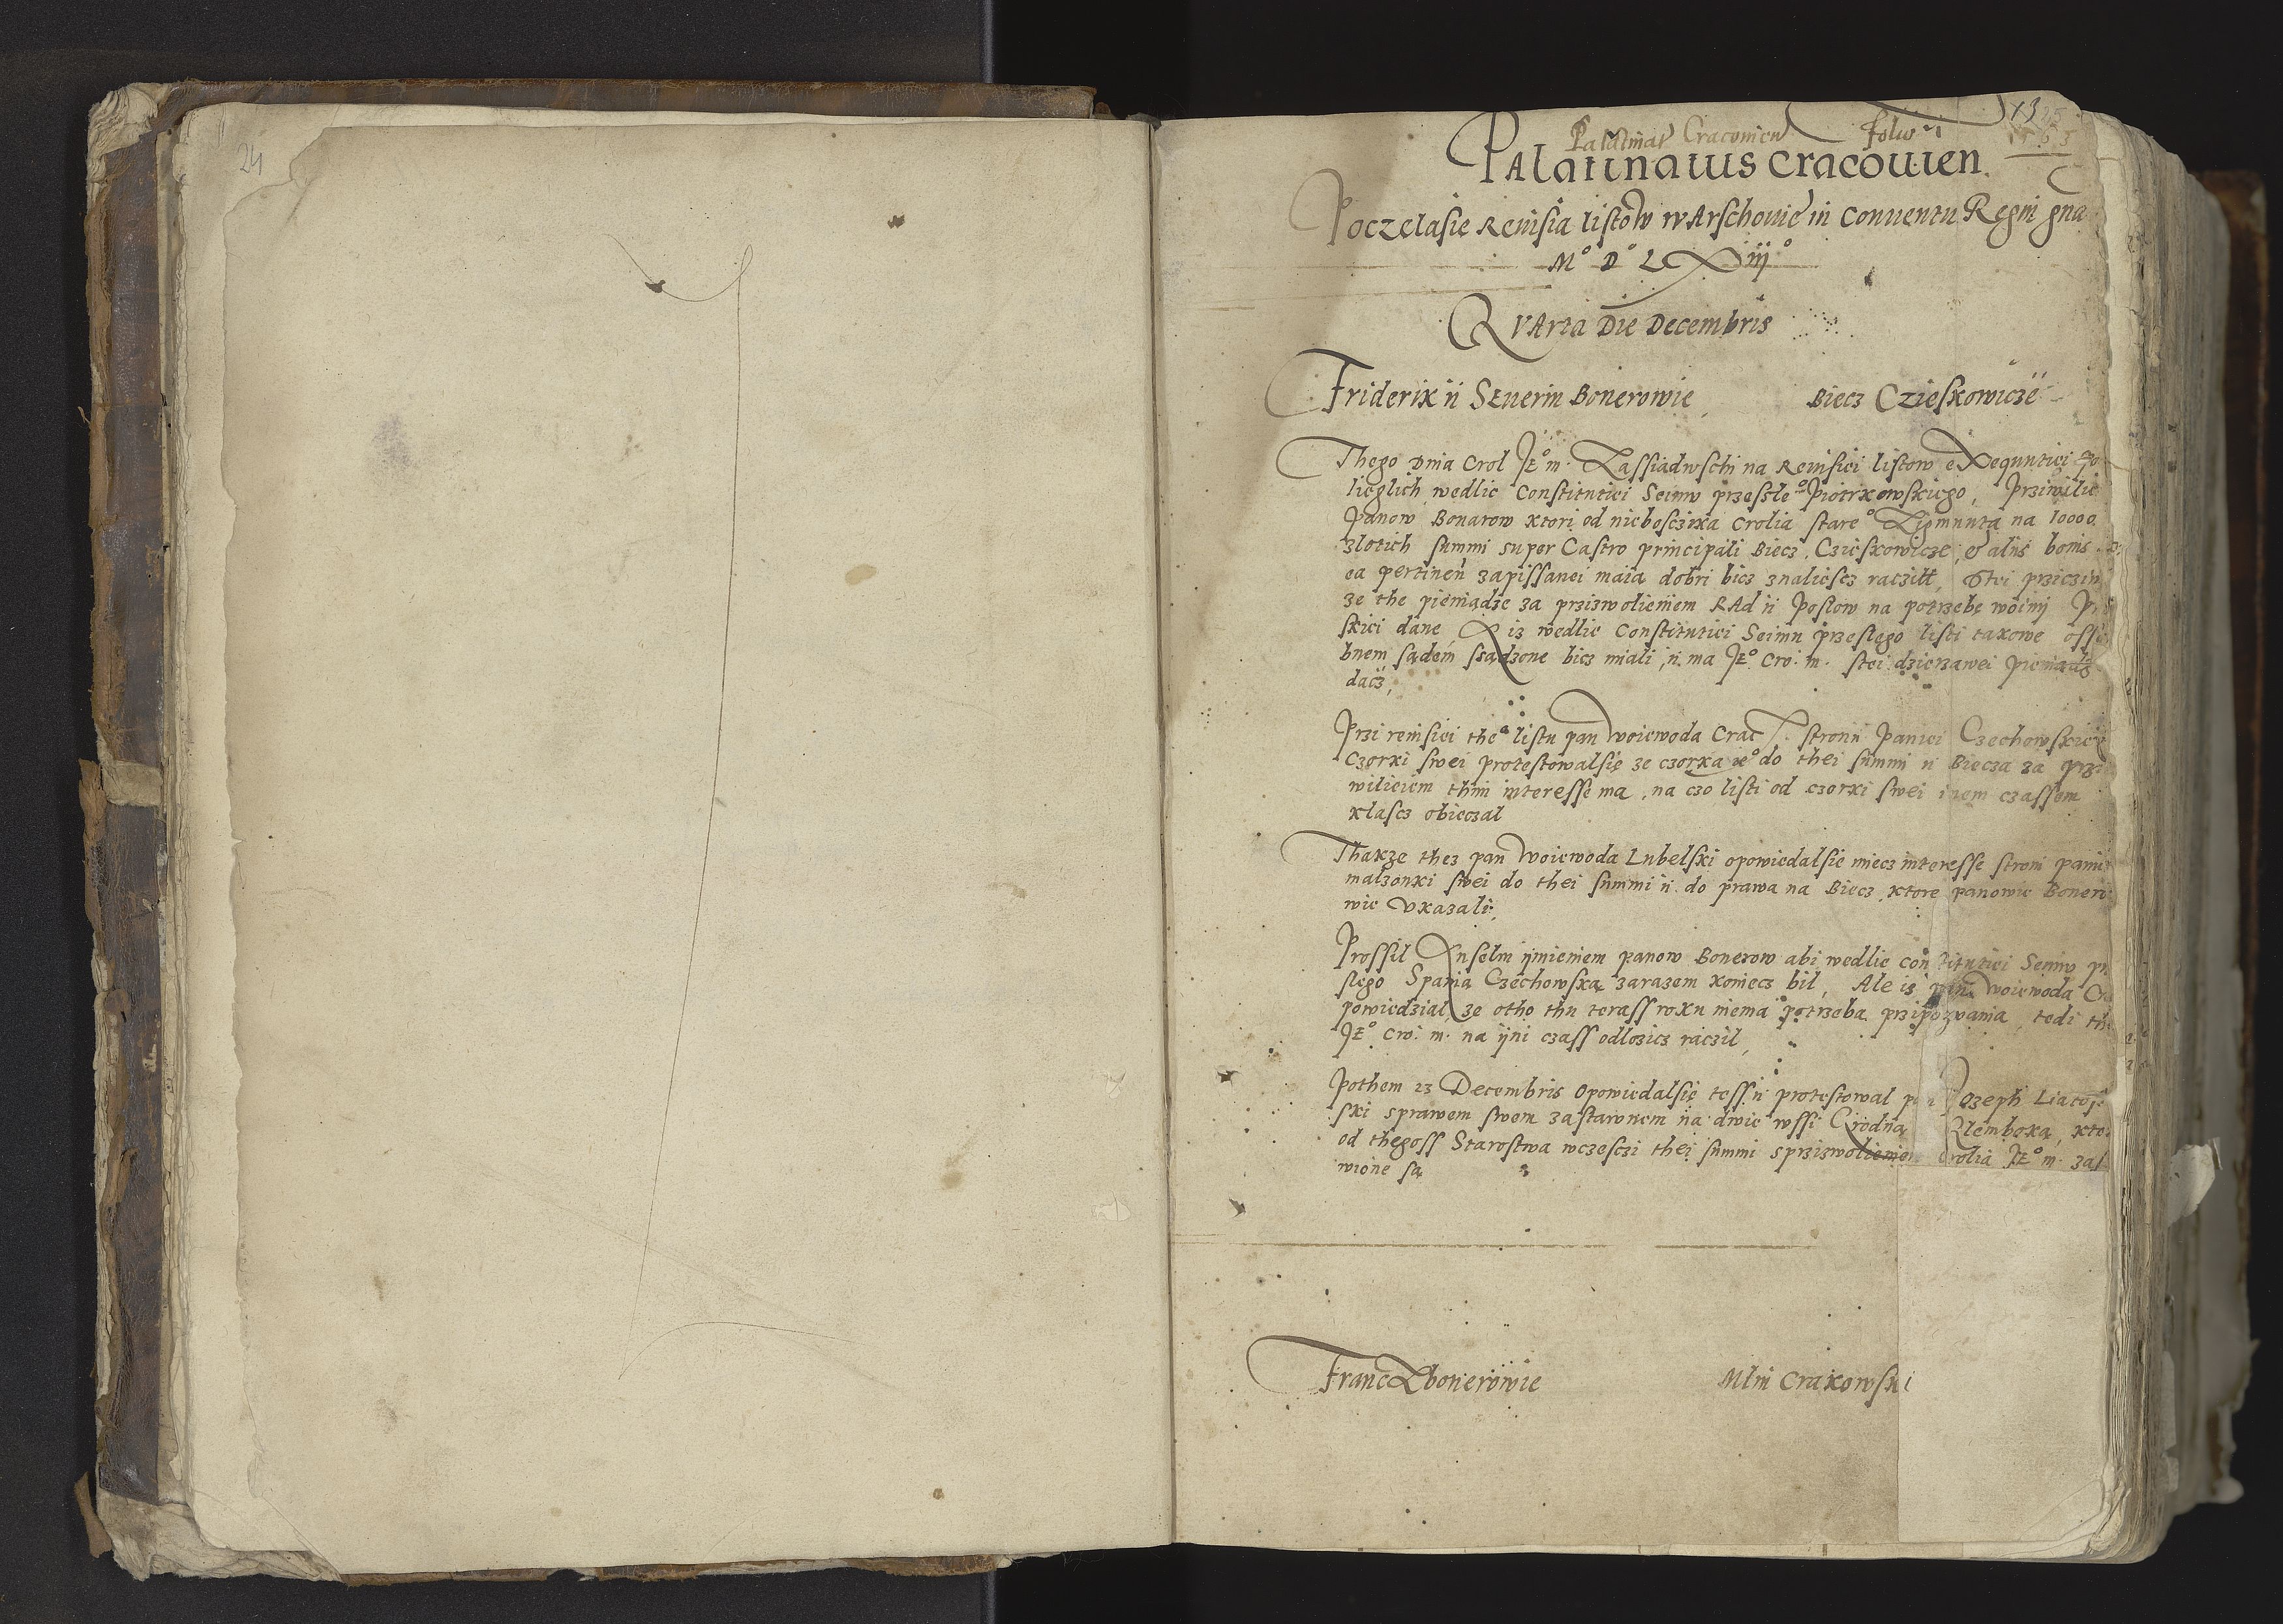 24
Palatinat Cracouien folio 1
Palatinatus Cracouien.
Poczęlasię Reuisia listow w Arschouie in Conuentu Regni gna
M° D° LXiij°
QVArta Die Decembris
Friderik ÿ SEuerin Bonerowie Biecz Czieskowiczÿ
Thego dnia Crol JE° m. Zassiadwschi na Reuisiei listow eXequutiei
lieglich wedlie Constitutiei Seimu przeszłe° Piotrkowskiego, Prziwilie
panow Bonarow ktori od niebosczika Crolia stare° Zigmunta na 10000
zlotich summi super Castro principali Biecz, Czieskowicze, & alijs bonis
ea pertinen zapissanei maia dobri bicz znaliescz racził, Stei prziczin
ze the pieniądze za przizwolieniem RAd ÿ Poslow na potrzebę woiny
skiei dane, A iz wedlie Constitutiei Seimu przeslego listi takowe
bnem sądem ssądzone bicz miali, ÿ ma JE° Cro: m. stei dzierzawei pieniadz
dacz,
Przi reuisiei the° listu pan Woiewoda Crac. stroni paniei Czechowskiei
Czorki swei protestowalsię ze czorka ie° do thei summi ÿ Biecza za
wilieiem thim interesse ma, na czo listi od czorki swei inem czassem
klascz obieczal
Thakze thez pan Woiewoda Lubelski opowiedalsie miecz interesse stroni paniei
malzonki swei do thei summi ÿ do prawa na Biecz, ktore panowie Bonero
wie Vkazali,
Prossil Anselm ijmieniem panow Bonerow abi wedlie Constitutiei Seimu
slego Spania Czechowska zarazem koniecz bil, Ale is pan Woiewoda
powiedzial, ze otho thu terass roku niema potrzeba przipozwania, tedi
JE° Cro: m. na ijni czass odlozicz raczil,
Pothem 23 Decembris Opowiedalsię tess ÿ protestowal Jozeph
ski sprawem swem zastawnem na dwie wssi Grodna Rlemboka,
od thegoss Starostwa wczesczi thei summi sprzizwoliemem Crolia JE° m.
wione są
Franc Bonerowie Mlin Crakowski